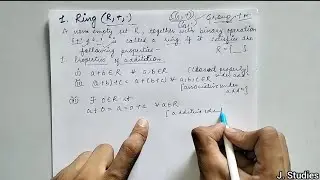 1. Ring (R, +, ·)
A non empty set R, together with binary operation
is called a ring if it satisfies
following properties -
1. Properties of addition -
(i) a+b ∈ R ∀ a, b ∈ R [closed property under
(ii) (a+b)+c = a+(b+c) ∀ a, b, c ∈ R
[associative under
(iii) ∃ 0 ∈ R st
a+0 = a = 0+a ∀ a ∈ R
[additive iden
J. Studies